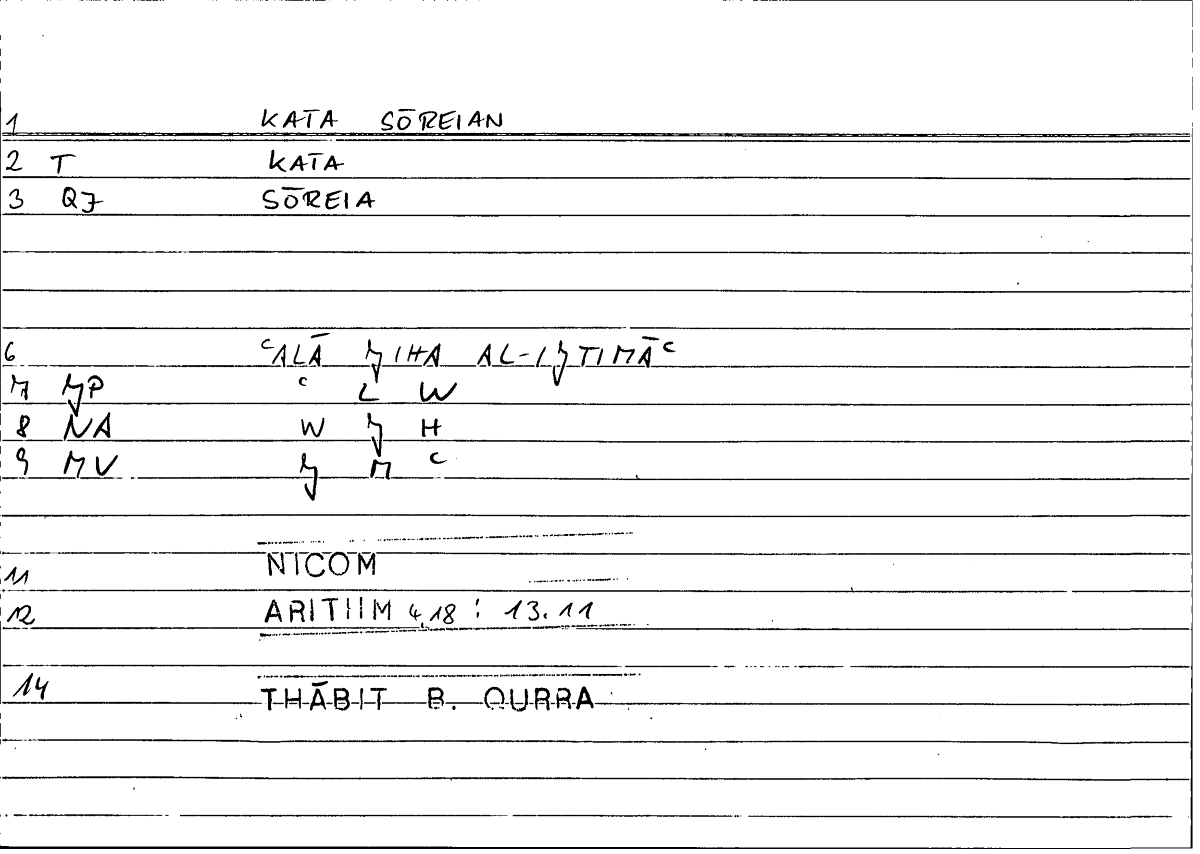 1 KATA SŌREIAN
2 T KATA
3 QJ SŌREIA
6 ʿALĀ ǦIHA AL-IǦTIMĀʿ
7 ǦP ʿ L W
8 NA W Ǧ H
9 MV Ǧ M ʿ
11 NICOM
12 ARITHM 4,18 : 13.11
14 THĀBIT B. QURRA